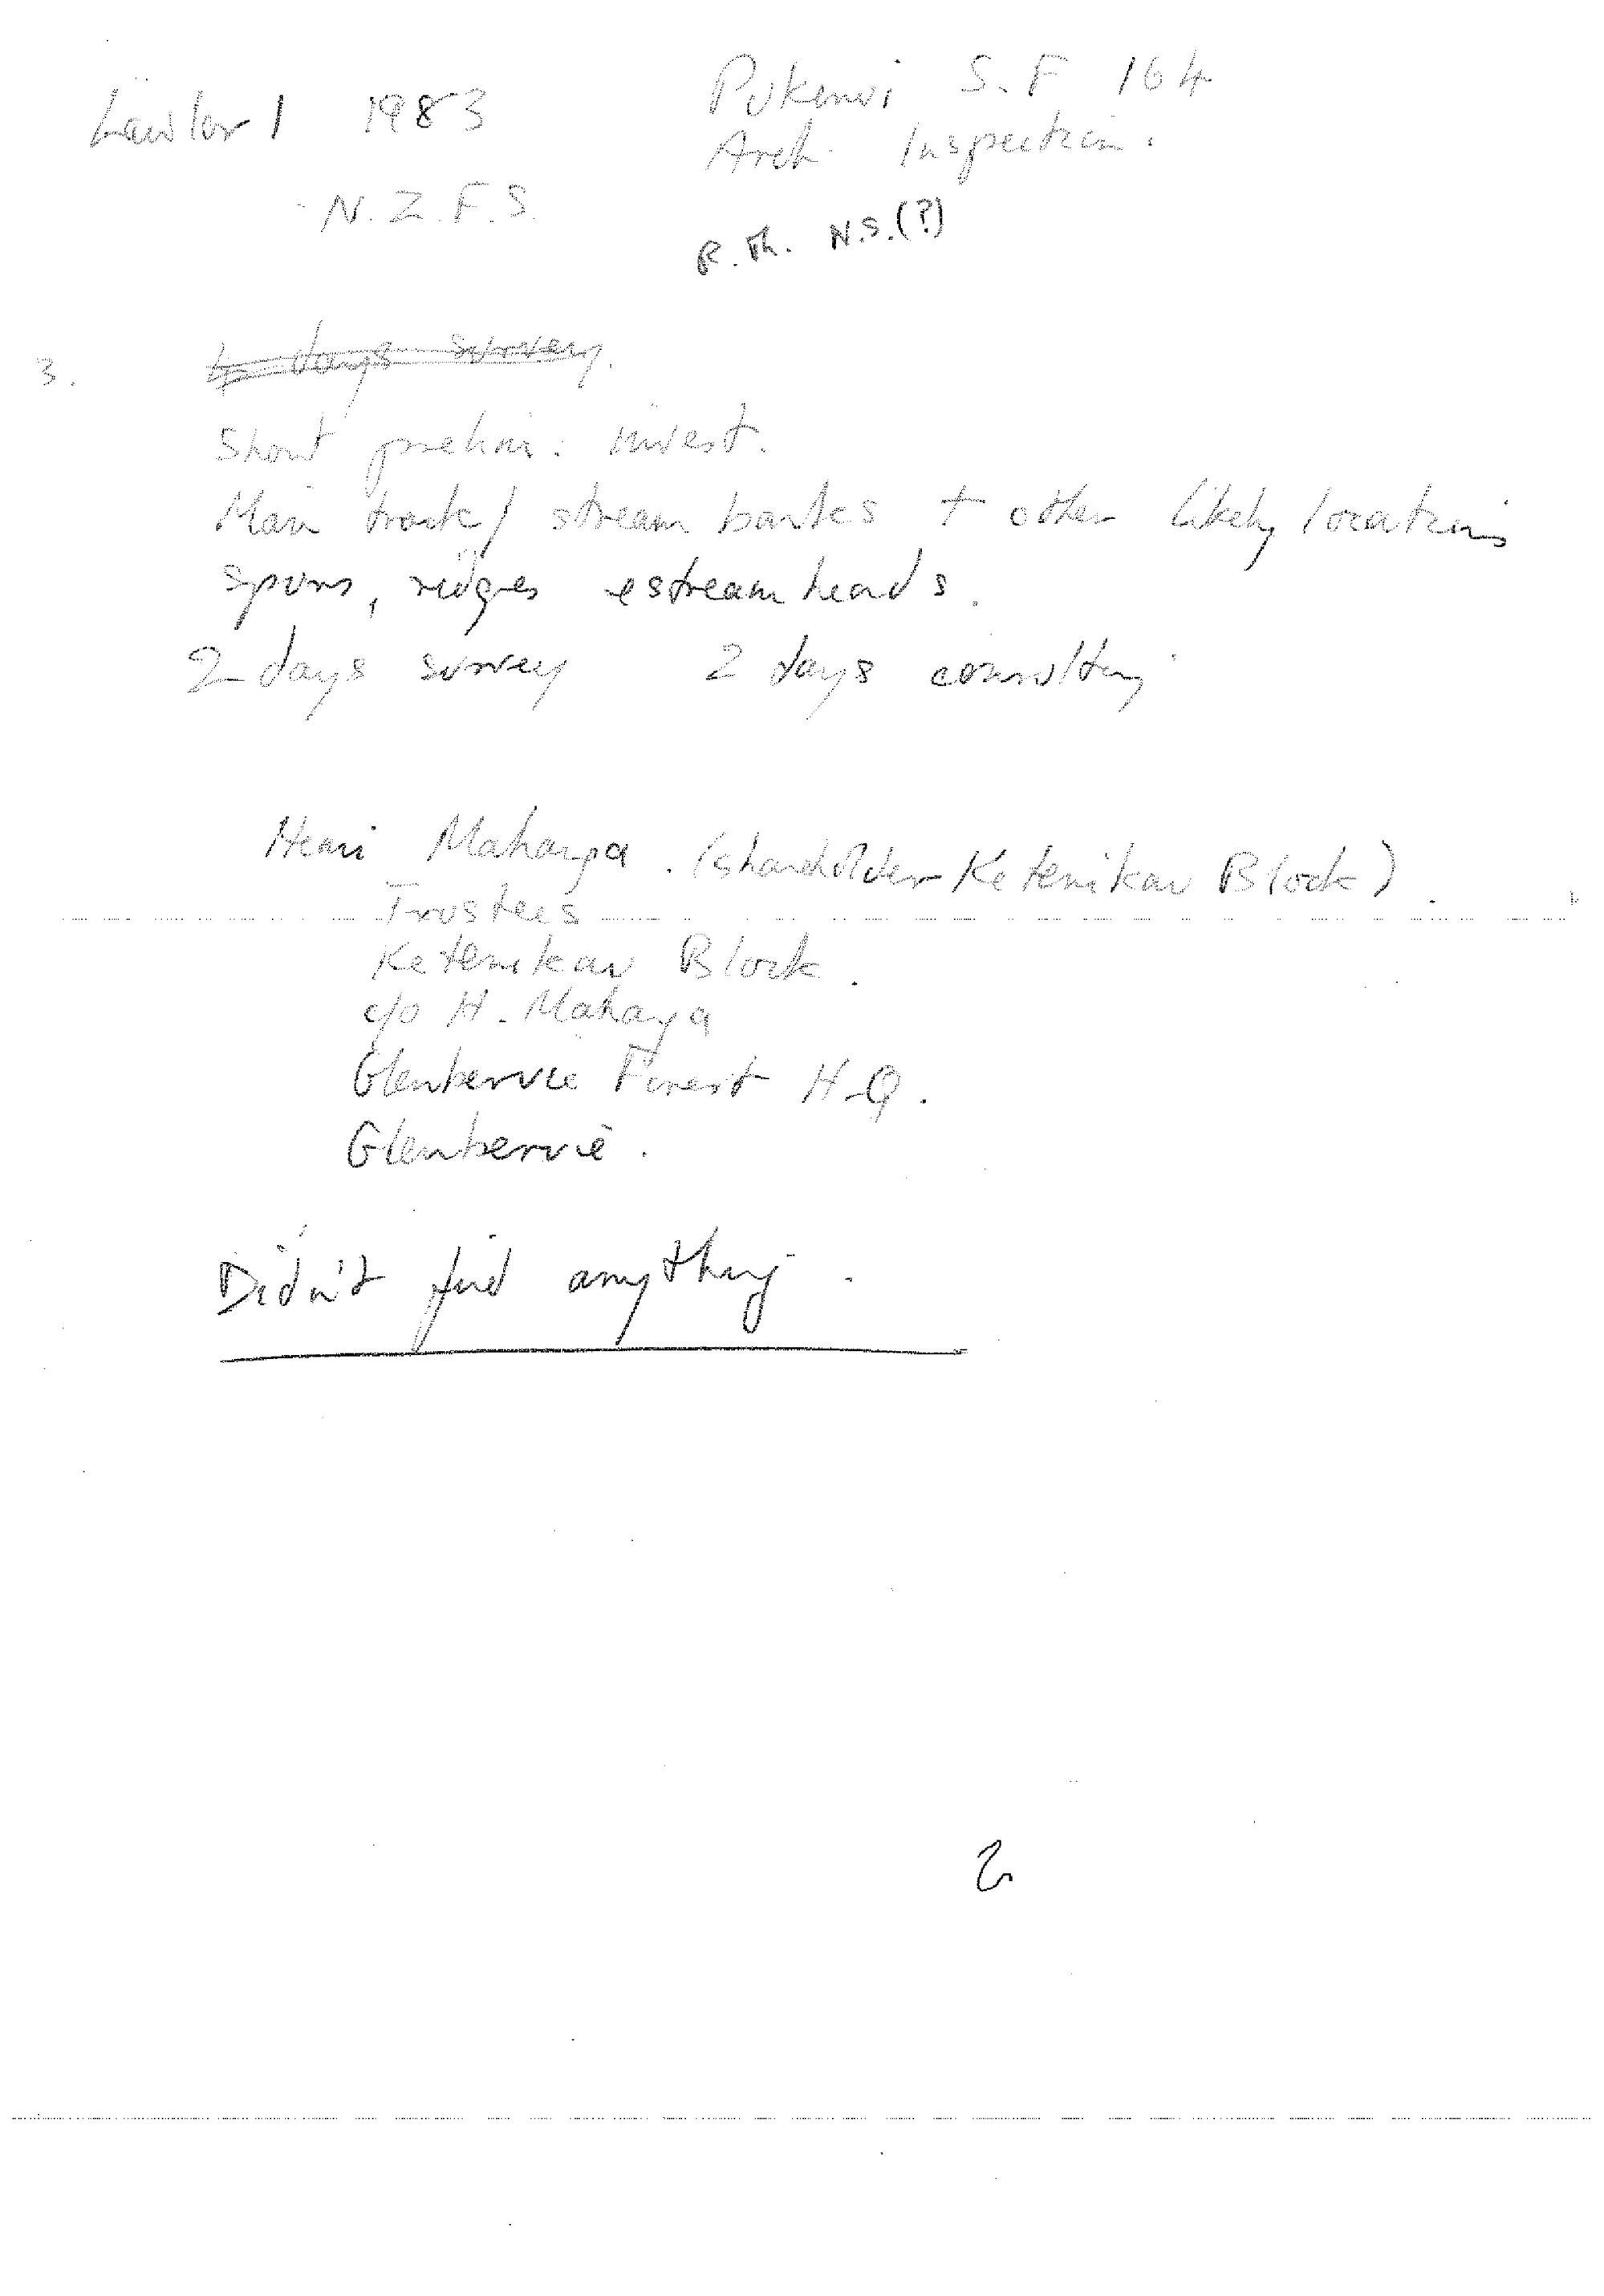 Lawlor 1 1983
Pukenui S.F 164
Arch. Inspection.
N.Z.F.S.
N.S.(?)
3. 4 days survey.
Short prelim. invest.
Main track / stream banks + other likely locations
spurs, ridges & stream heads.
2 days survey 2 days consulting
Henri . (shareholder Ketenikau Block).
Trustees
Ketenikau Block.
c/o H.
Glenbervie Forest H.Q.
Glenbervie.
Didn't find anything.